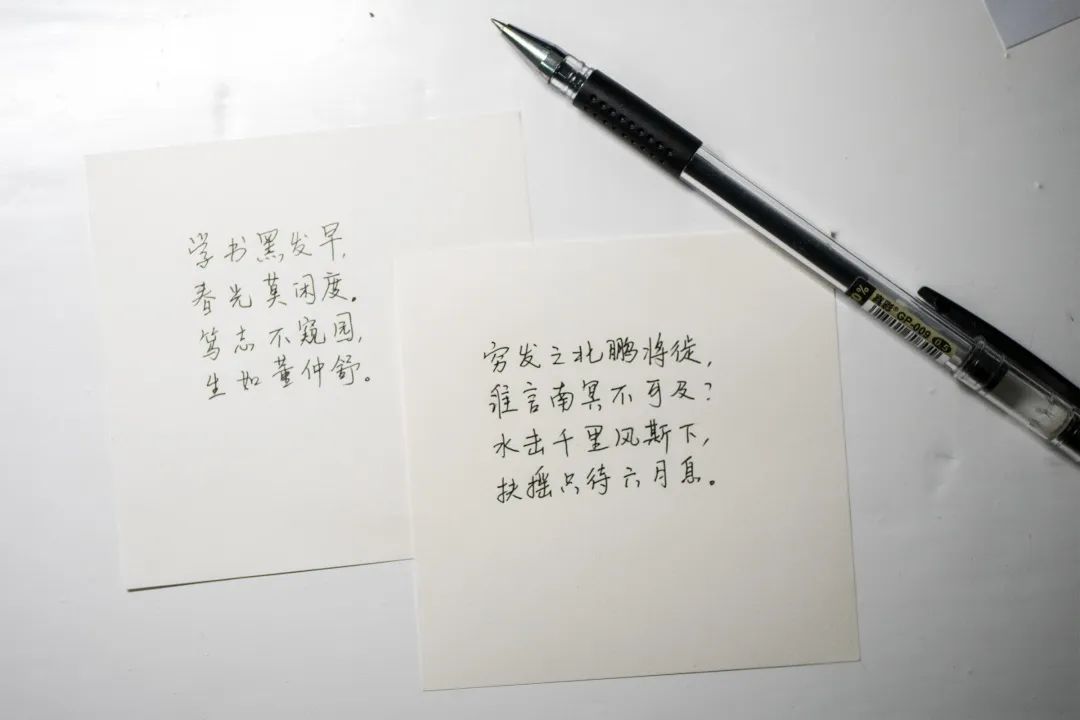 学书黑发早，
春光莫闲度。
笃志不窥园，
生如董仲舒。
穷发之北鹏将徙，
谁言南冥不可及？
水击千里风斯下，
扶摇只待六月息。
GP-009 0.5